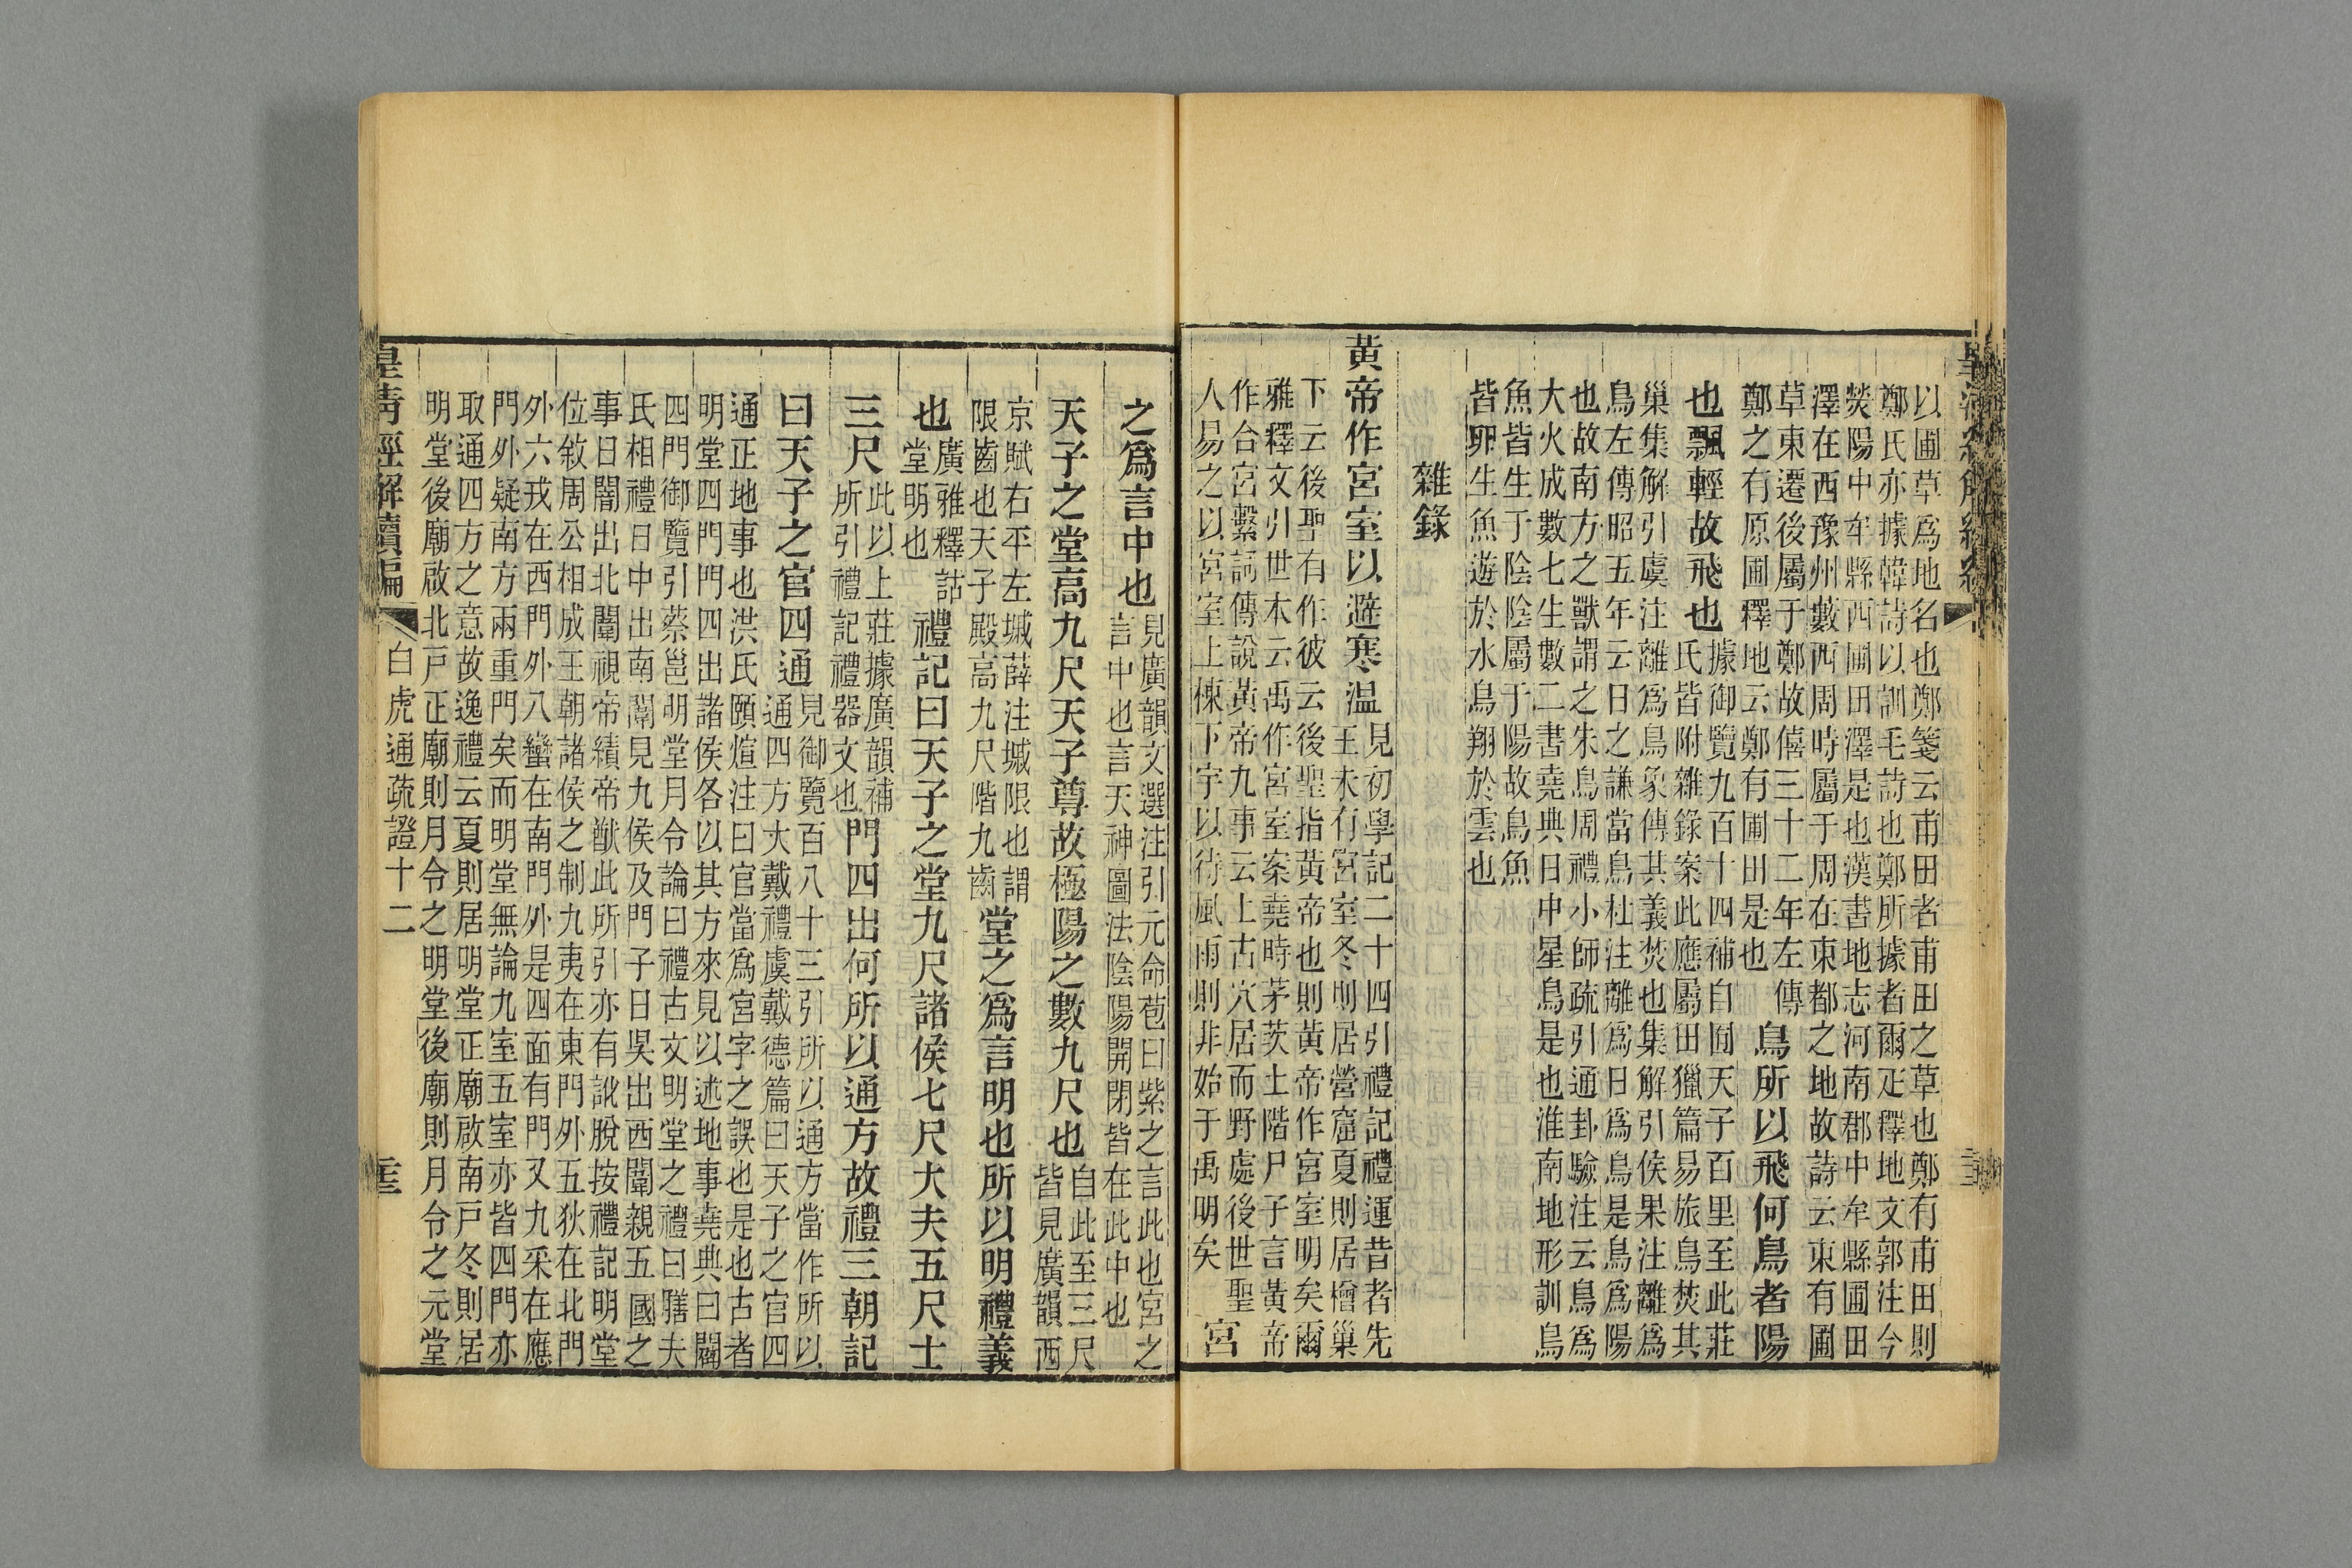 以圃草爲地名也鄭箋云甫田者甫田之草也鄭有甫田則
鄭氏亦據韓詩以訓毛詩也鄭所據者爾疋釋地文郭注今
熒陽中牟縣西圃田澤是也漢書地志河南郡中牟縣圃田
澤在西豫州藪西周時屬于周在東都之地故詩云東有圃
草東遷後屬于鄭故僖三十二年左傳
鄭之有原圃釋地云鄭有圃田是也
鳥所以飛何鳥者陽
也飄輕故飛也
據御覽九百十四補自囿天子百里至此莊
氏皆附雜錄案此應屬田獵篇易旅鳥焚其
巢集解引虞注離爲鳥象傳其義焚也集解引侯果注離爲
鳥左傳昭五年云日之謙當鳥杜注離爲日爲鳥是鳥爲陽
也故南方之獸謂之朱鳥周禮小師疏引通卦驗注云鳥爲
大火成數七生數二書堯典日中星鳥是也淮南地形訓鳥
魚皆生于陰陰屬于陽故鳥魚
皆卵生魚遊於水鳥翔於雲也
雜錄
黃帝作宮室以避寒温
見初學記二十四引禮記禮運昔者先
王未有宮室冬則居營窟夏則居橧巢
下云後聖有作彼云後聖指黃帝也則黃帝作宮室明矣爾
雅釋文引世本云禹作宮室案堯時茅茨土階尸子言黃帝
作合宮繫詞傳說黃帝九事云上古穴居而野處後世聖
人易之以宮室上棟下宇以待風雨則非始于禹明矣
宮
之爲言中也
見廣韻文選注引元命苞曰紫之言此也宮之
言中也言天神圖法陰陽開閉皆在此中也
天子之堂高九尺天子尊故極陽之數九尺也
自此至三尺
皆見廣韻西
京賦右平左墄薛注墄限也謂
限齒也天子殿高九尺階九齒
堂之爲言明也所以明禮義
也
廣雅釋詁
堂明也
禮記曰天子之堂九尺諸侯七尺大夫五尺士
三尺
此以上莊據廣韻補
所引禮記禮器文也
門四出何所以通方故禮三朝記
曰天子之官四通
見御覽百八十三引所以通方當作所以
通四方大戴禮虞戴德篇曰天子之官四
通正地事也洪氏頤煊注曰官當爲宮字之誤也是也古者
明堂四門門四出諸侯各以其方來見以述地事堯典曰闢
四門御覽引蔡邕明堂月令論曰禮古文明堂之禮曰膳夫
氏相禮日中出南闈見九侯及門子日昃出西闈親五國之
事日闇出北闈視帝績帝猷此所引亦有訛脫按禮記明堂
位敘周公相成王朝諸侯之制九夷在東門外五狄在北門
外六戎在西門外八蠻在南門外是四面有門又九采在應
門外疑南方兩重門矣而明堂無論九室五室亦皆四門亦
取通四方之意故逸禮云夏則居明堂正廟啟南戸冬則居
明堂後廟啟北戸正廟則月令之明堂後廟則月令之元堂
皇清經解續編
白虎通疏證十二